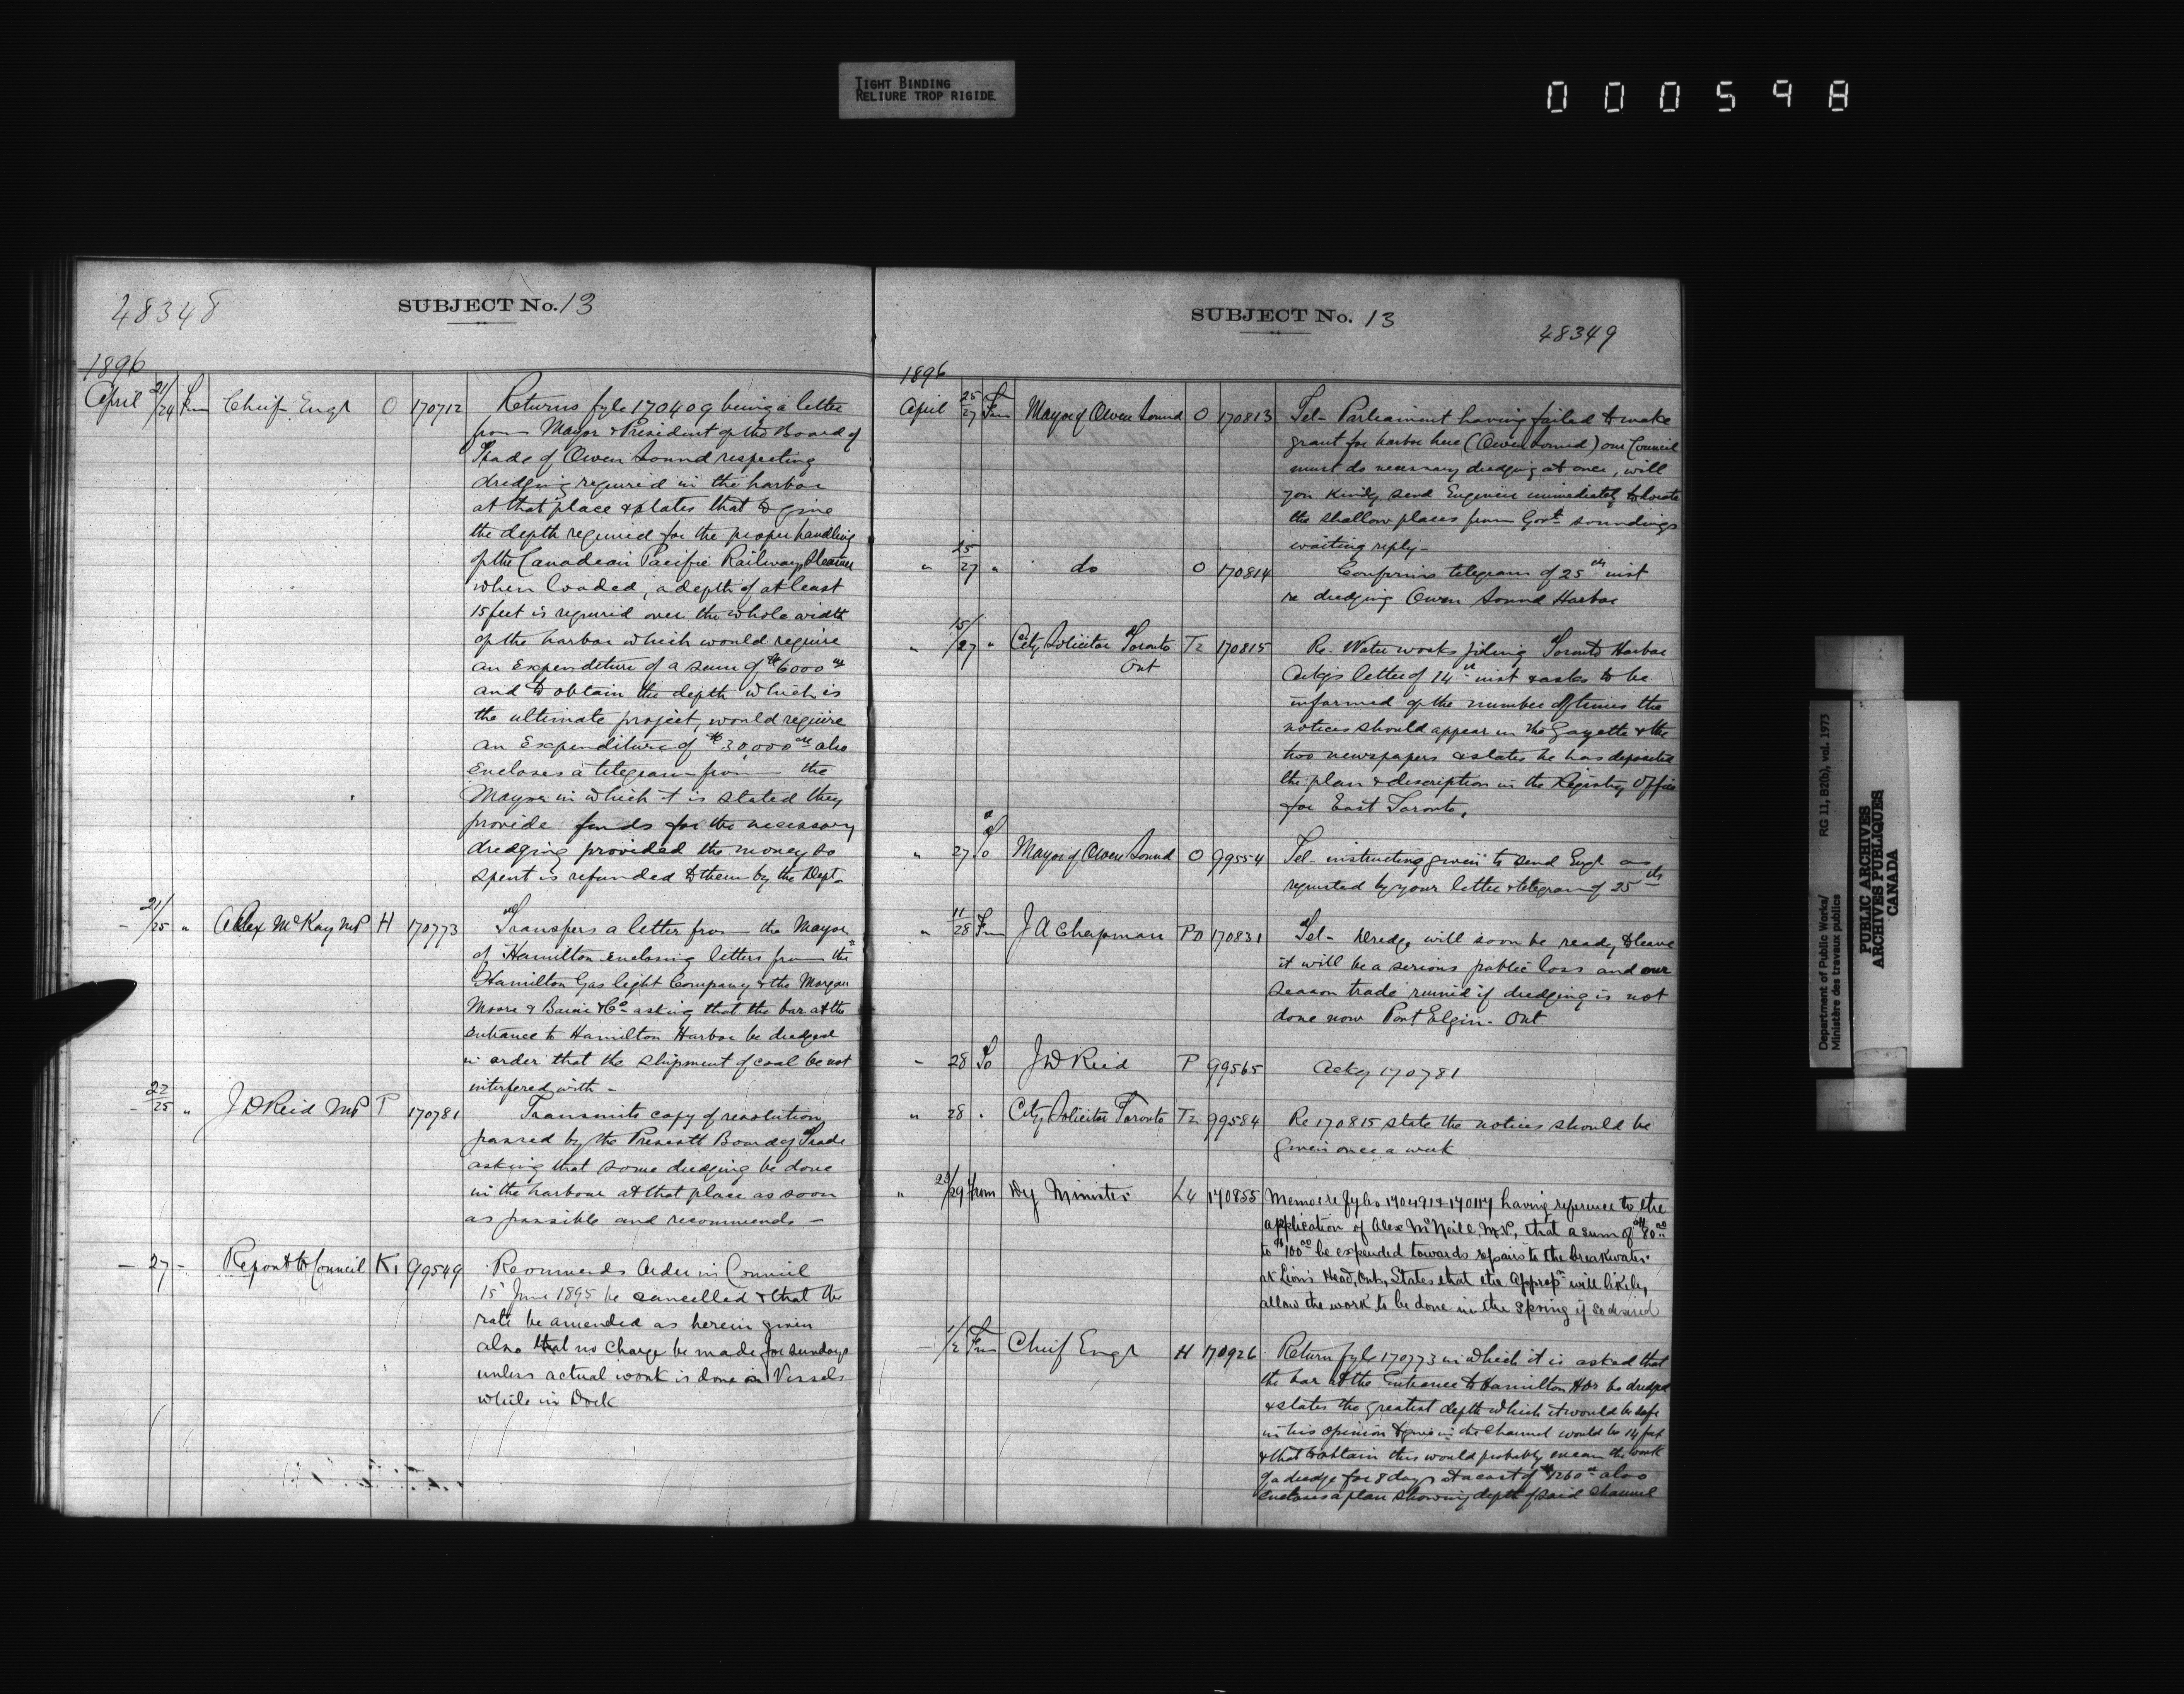 TIGHT BINDING
RELIURE TROP RIGIDE
000598
48348
SUBJECT No. 13
1896
April 21/24 Fm Chief Engr O 170712 Returns fyle 170409 being a letter
from Mayor & President of the Board of
Trade of Owen Sound respecting
dredging required in the harbor
at that place & states that to give
the depth required for the proper handling
of the Canadian Pacific Railway Steamers
when loaded, a depth of at least
15 feet is required over the whole width
of the harbor which would require
an Expenditure of a sum of $6000 00
and to obtain the depth which is
the ultimate project, would require
an Expenditure of $30,000 00 also
encloses a telegram from the
Mayor in which it is stated they
provide funds for the necessary
dredging provided the money so
spent is refunded to them by the Dept.
- 21/25 " Alex McKay MP H 170773 Transfers a letter from the Mayor
of Hamilton enclosing letters from the
Hamilton Gas light Company & the Morgan
Moore & Co asking that the bar at the
entrance to Hamilton Harbor be dredged
in order that the shipment of coal be not
interfered with -
- 22/25 " J D Reid MP P 170781 Transmits copy of resolution
passed by the Prescott Board of Trade
asking that some dredging be done
in the harbour at that place as soon
as possible and recommends -
- 27 - Report to Council K1 99549 Recommends Order in Council
15 June 1895 be cancelled & that the
rate be amended as herein given
also that no charge be made for sundays
unless actual work is done on Vessels
while in Dock
SUBJECT No. 13
48349
1896
April 25/27 Fm Mayor of Owen Sound O 170813 Tel - Parliament having failed to make
grant for harbor here (Owen Sound) our Council
must do necessary dredging at once, will
you kindly send Engineer immediately to locate
the shallow places from Govt soundings
waiting reply -
" 25/27 " do O 170814 Confirms telegram of 25th inst
re dredging Owen Sound Harbor
" 15/27 " City Solicitor Toronto T2 170815 Re - Water works piling Toronto Harbor
Ont
Ackgs letter of 14th inst & asks to be
informed of the number of times the
notices should appear in the Gazette & the
two newspapers & states he has deposited
the plan & description in the Registry Office
for East Toronto.
" 27 To Mayor of Owen Sound O 99554 Tel - instructions given to send Engr as
requested by your letter & telegram of 25th
" 11/28 Fm J A Chapman PO 170831 Tel - Dredge will soon be ready to leave
it will be a serious public loss and our
season trade ruined if dredging is not
done now Port Elgin - Ont
- 28 To J D Reid P 99565 Ackg 170781
" 28 " City Solicitor Toronto T2 99584 Re 170815 state the notices should be
given once a week
" 23/29 From Dy Minister L4 170855 Memo re fyles 170491 & 170117 having reference to the
application of Alex McNeill, M.P., that a sum of $80 00
to $100 00 be expended towards repairs to the breakwater
at Lion's Head, Ont, States that the Appropn will likely
allow the work to be done in the Spring if so desired
- 1/2 Fm Chief Engr H 170926 Return fyle 170773 in which it is asked that
the bar at the Entrance to Hamilton Hbr be dredged
& states the greatest depth which it would be safe
in his opinion to give in the Channel would be 14 feet
& that to obtain this would probably mean the work
of a dredge for 8 days at a cost of $1260 00 also
Encloses a plan showing depth of said channel
Department of Public Works/ RG 11, B2(b), vol. 1973
Ministère des travaux publics
PUBLIC ARCHIVES
ARCHIVES PUBLIQUES
CANADA